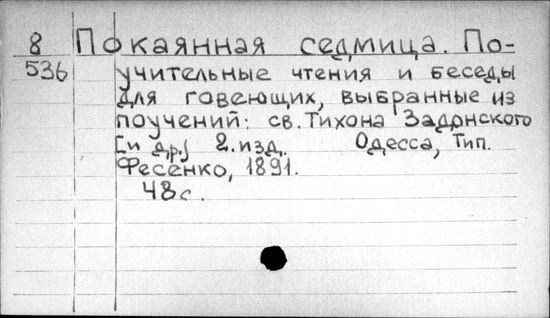 8 Покаянная седмица. По-
536 учительные чтения и беседы
для говеющих, выбранные из
поучений: св. Тихона Задонского
[и др.] 2. изд. Одесса, Тип.
Фесенко, 1891.
48 с.